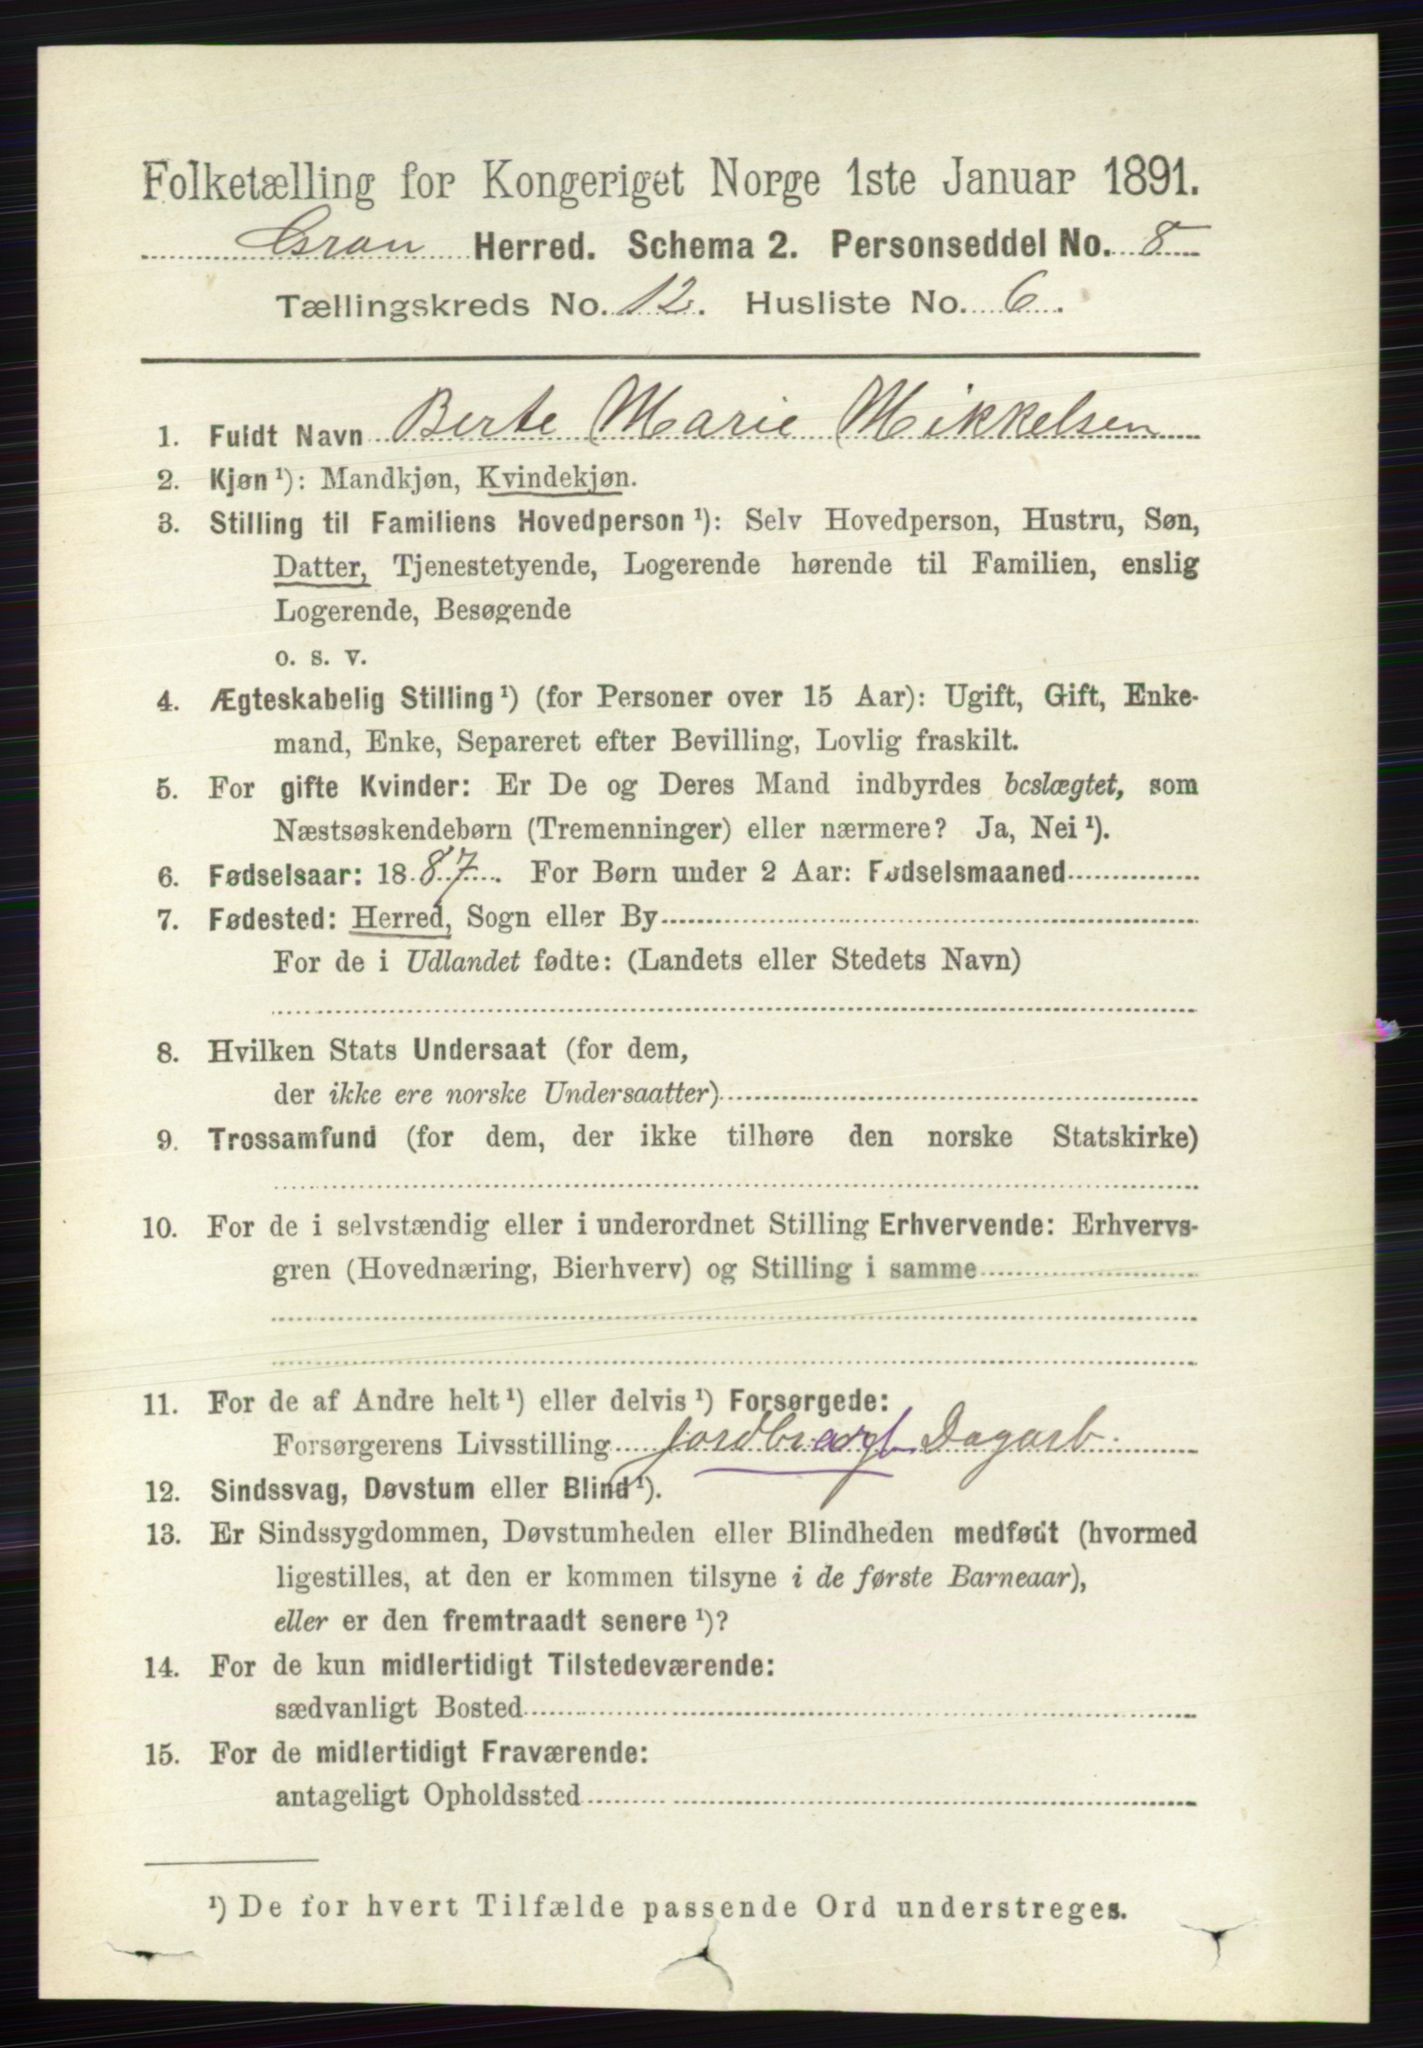 Folketælling for Kongeriget Norge 1ste Januar 1891.
Gran Herred. Schema 2. Personseddel No. 8
Tællingskreds No. 12. Husliste No. 6.
1. Fuldt Navn Berte Marie Mikkelsen
2. Kjøn ¹): Mandkjøn, Kvindekjøn.
3. Stilling til Familiens Hovedperson ¹): Selv Hovedperson, Hustru, Søn,
Datter, Tjenestetyende, Logerende hørende til Familien, enslig
Logerende, Besøgende
o. s. v.
4. Ægteskabelig Stilling ¹) (for Personer over 15 Aar): Ugift, Gift, Enke-
mand, Enke, Separeret efter Bevilling, Lovlig fraskilt.
5. For gifte Kvinder: Er De og Deres Mand indbyrdes beslægtet, som
Næstsøskendebørn (Tremenninger) eller nærmere? Ja, Nei ¹).
6. Fødselsaar: 1887. For Børn under 2 Aar: Fødselsmaaned
7. Fødested: Herred, Sogn eller By
For de i Udlandet fødte: (Landets eller Stedets Navn)
8. Hvilken Stats Undersaat (for dem,
der ikke ere norske Undersaatter)
9. Trossamfund (for dem, der ikke tilhøre den norske Statskirke)
10. For de i selvstændig eller i underordnet Stilling Erhvervende: Erhvervs-
gren (Hovednæring, Bierhverv) og Stilling i samme
11. For de af Andre helt ¹) eller delvis ¹) Forsørgede:
Forsørgerens Livsstilling Dagarb.
12. Sindssvag, Døvstum eller Blind ¹).
13. Er Sindssygdommen, Døvstumheden eller Blindheden medfødt (hvormed
ligestilles, at den er kommen tilsyne i de første Barneaar),
eller er den fremtraadt senere ¹)?
14. For de kun midlertidigt Tilstedeværende:
sædvanligt Bosted
15. For de midlertidigt Fraværende:
antageligt Opholdssted
¹) De for hvert Tilfælde passende Ord understreges.